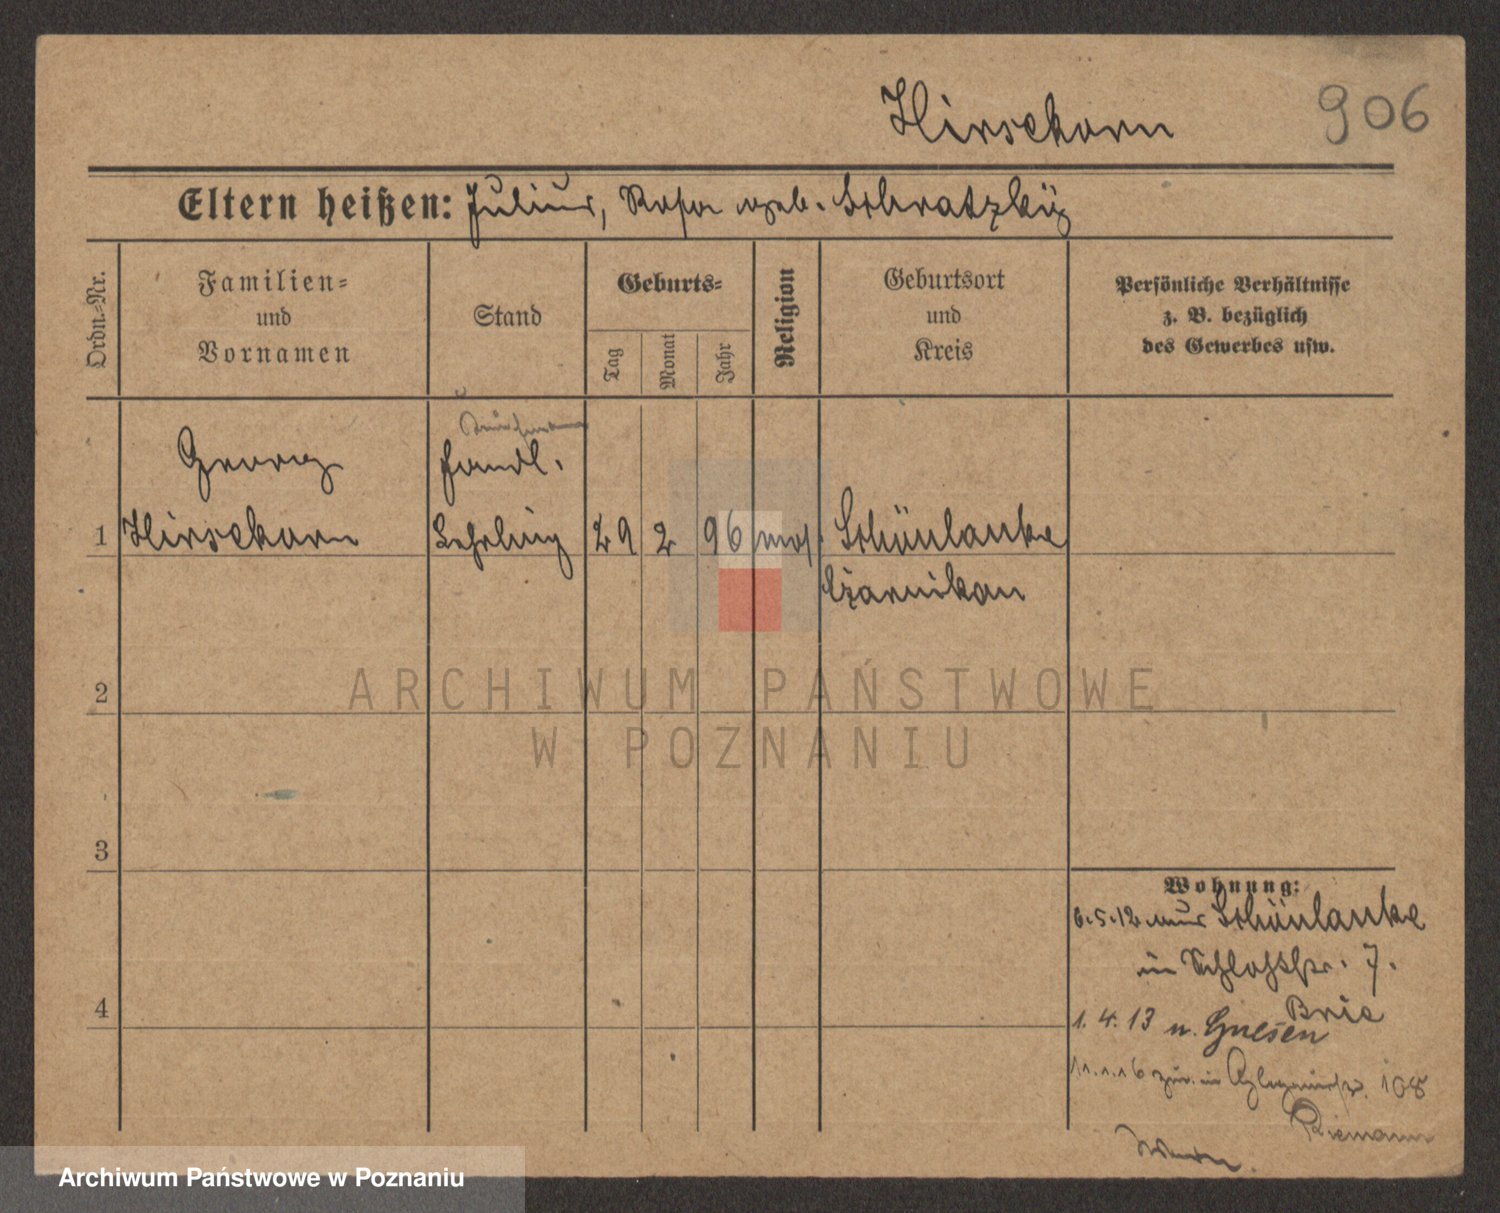 Hirsekorn
906
Eltern heißen: Julius, Rosa geb. Schratzky
Ordn.-Nr.
Familien-
und
Vornamen
Stand
Geburts-
Tag
Monat
Jahr
Religion
Geburtsort
und
Kreis
Persönliche Verhältnisse
z. B. bezüglich
des Gewerbes usw.
Georg
Handl.
1 Hirsekorn Lehrling 29 2 96 mos. Schönlanke
Czarnikau
ARCHIWUM PAŃSTWOWE
W POZNANIU
2
3
4
Wohnung:
6.5.12 aus Schönlanke
in Schloßstr. 7.
Brie
1.4.13 n. Gnesen
11.1.16 zur. in 108
Riemann
Archiwum Państwowe w Poznaniu